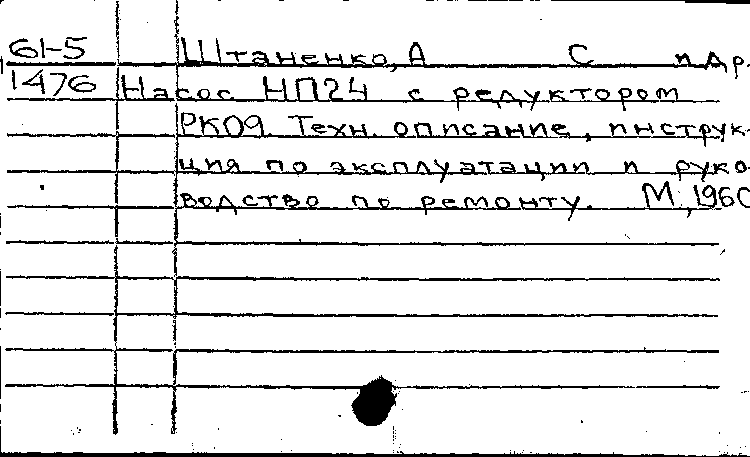 61-5 Штаненко, А С и др.
1476 Насос НП24 с редуктором
РК09. Техн. описание, инструк-
ция по эксплуатации и руко
водство по ремонту. М., 1960